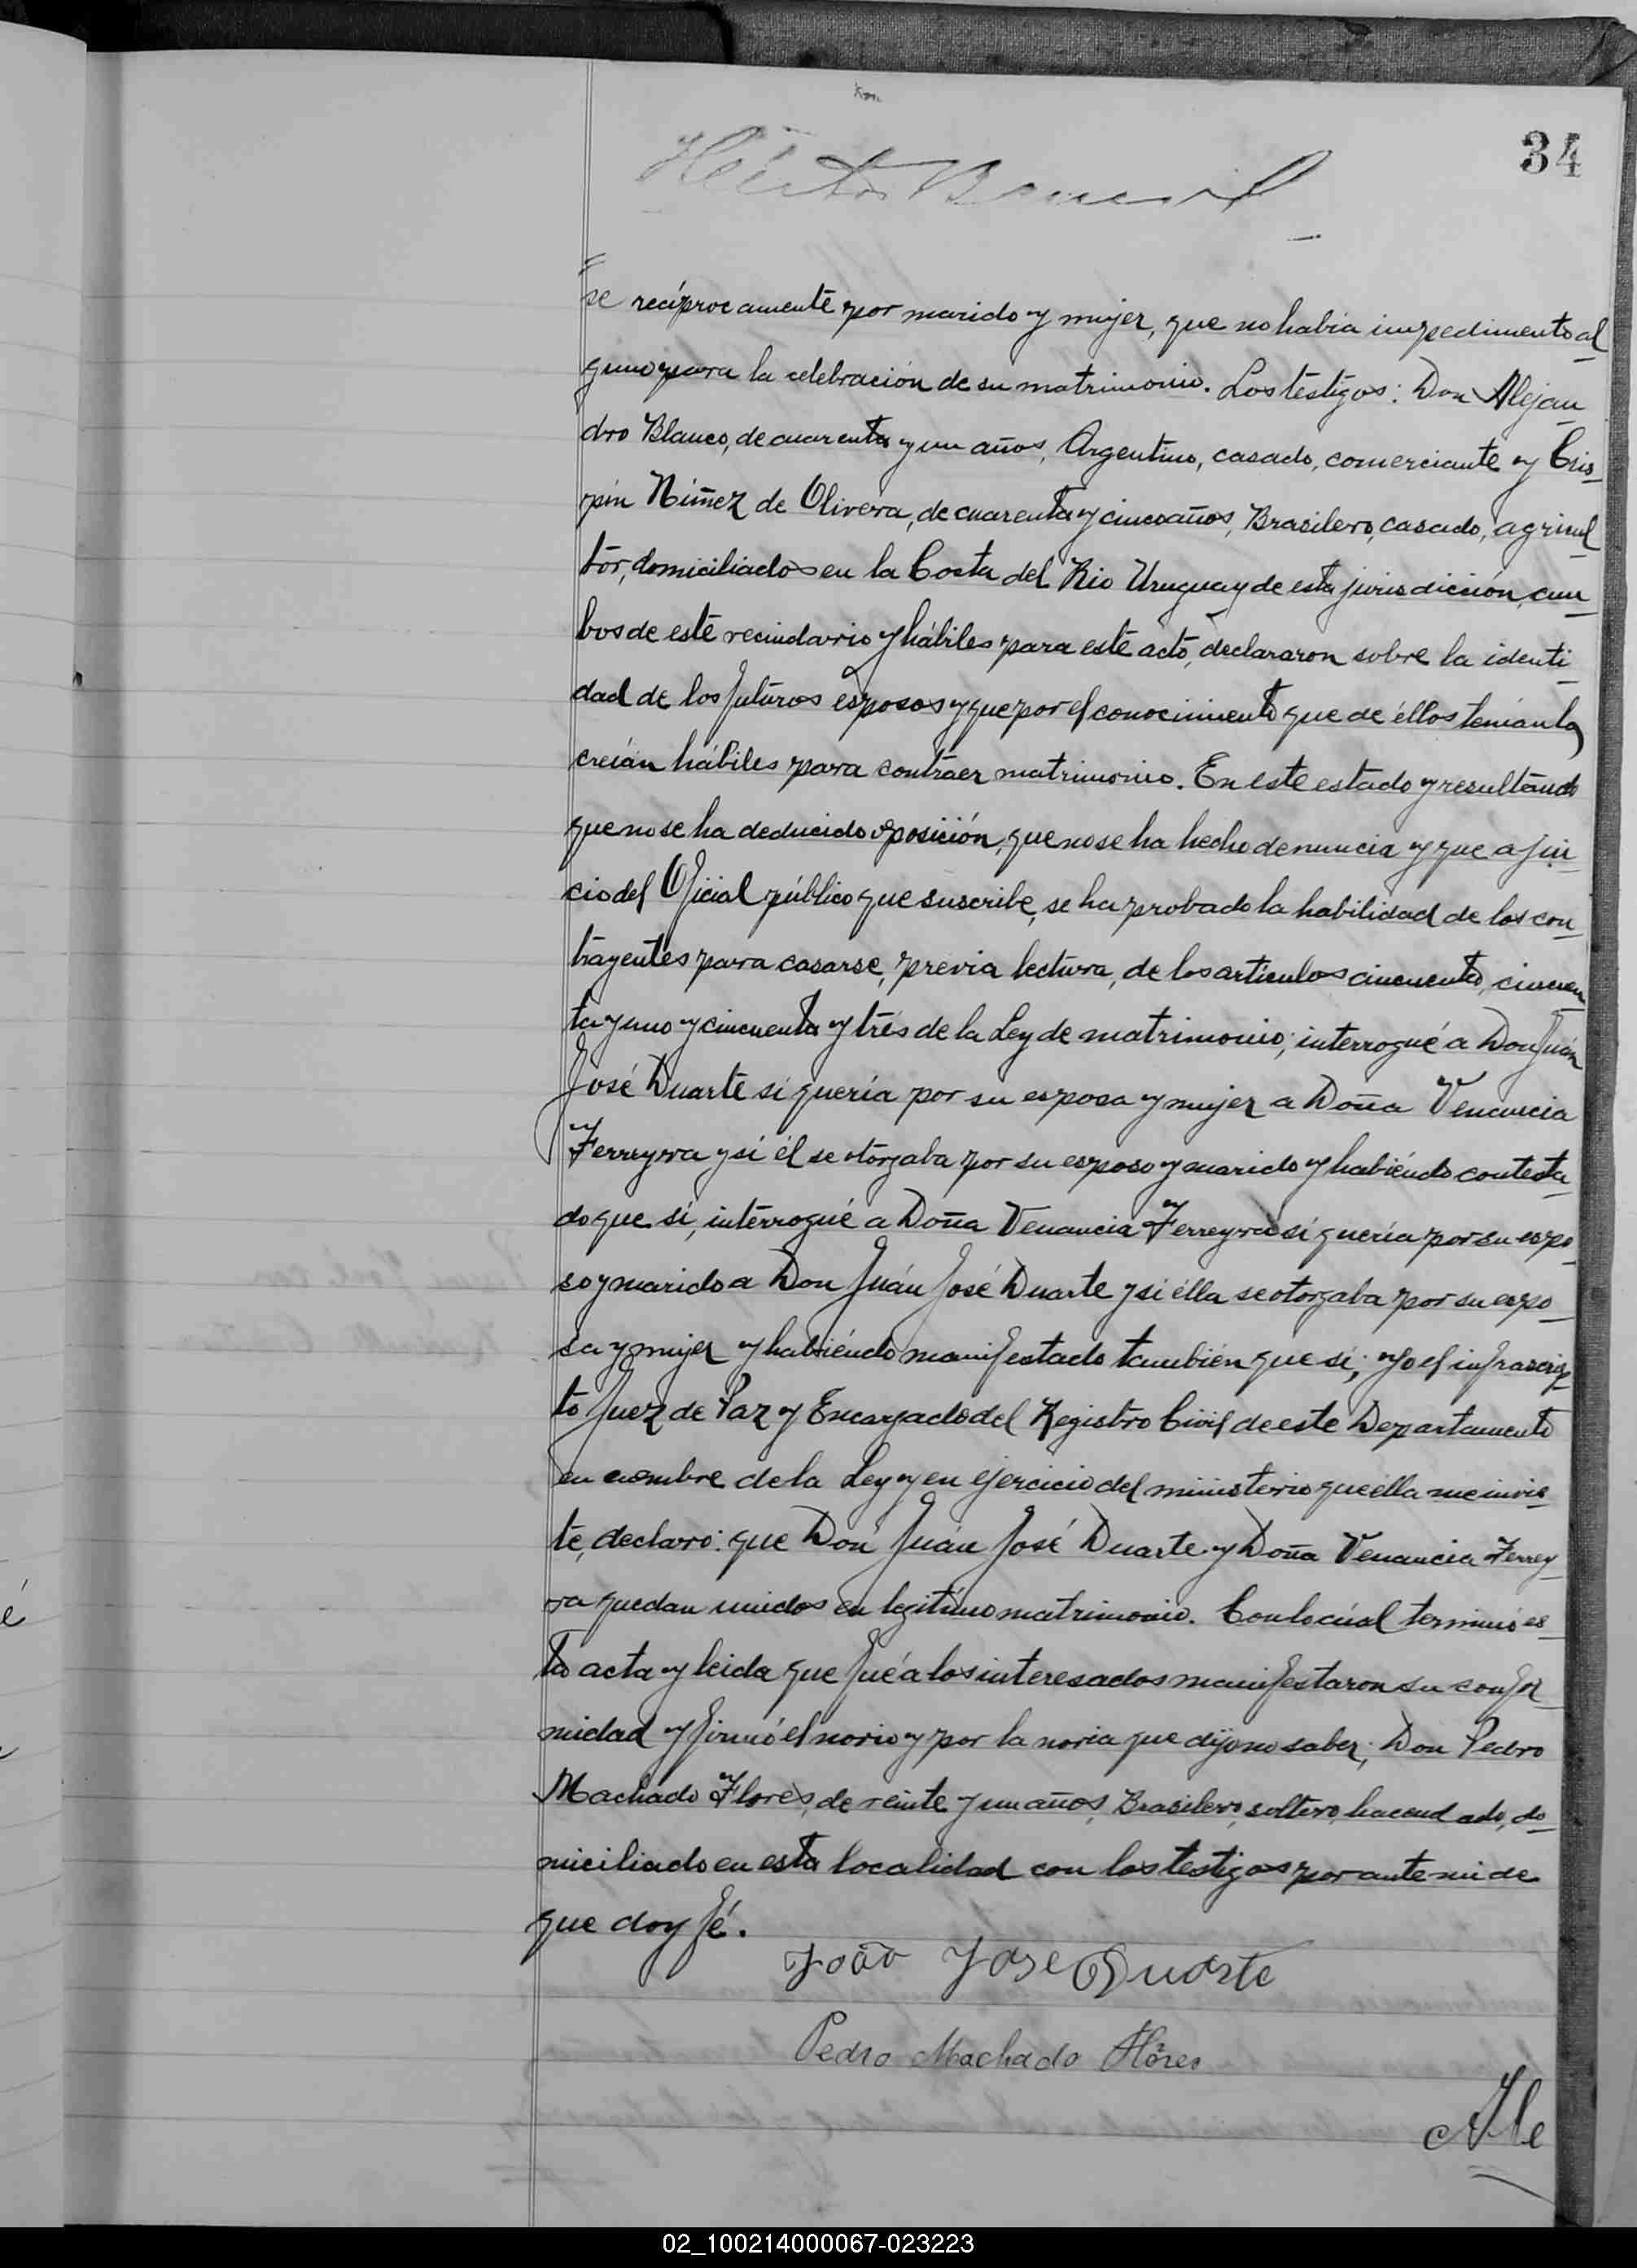 34
Héctor
se recíprocamente por marido y mujer, que no habia impedimento al
guno para la celebración de su matrimonio. Los testigos: Don Alejan
dro Blanco, de cuarenta y un años, Argentino, casado, comerciante y Cris
pín Núñez de Olivera, de cuarenta y cinco años, Brasilero, casado, agricul
tor, domiciliados en la Costa del Rio Uruguay de esta jurisdicción, am
bos de este vecindario y hábiles para este acto, declararon sobre la identi
dad de los futuros esposos y que por el conocimiento que de éllos tenían los
creían hábiles para contraer matrimonio. En este estado y resultando
que no se ha deducido oposición, que no se ha hecho denuncia y que a jui
cio del Oficial público que suscribe, se ha probado la habilidad de los con
trayentes para casarse, previa lectura, de los artículos cincuenta, cincuen
ta y uno y cincuenta y trés de la Ley de matrimonio; interrogué a Don Juán
José Duarte si quería por su esposa y mujer a Doña Venancia
Ferreyra y si él se otorgaba por su esposo y marido y habiéndo contesta
do que sí, intérrogué a Doña Venancia Ferreyra si quería por su espo
so y marido a Don Juán José Duarte y si élla se otorgaba por su espo
sa y mujer y habiéndo manifestado también que sí; yo el infrascrip
to Juez de Paz y Encargado del Registro Civil de este Departamento
en nombre de la Ley y en ejercicio del ministerio que ella me invis
te, declaro: que Don Juán José Duarte y Doña Venancia Ferrey
ra quedan unidos en legítimo matrimonio. Con lo cúal terminó es
ta acta y leida que fué a los interesados manifestaron su confor
midad y firmó el novio y por la novia que dijo no saber; Don Pedro
Machado Flores, de veinte y un años, Brasilero, soltero, hacendado, do
miciliado en esta localidad con los testigos por ante mi de
que doy fé.
João Jose Duarte
Pedro Machado Flôres
Ale
02_100214000067-023223